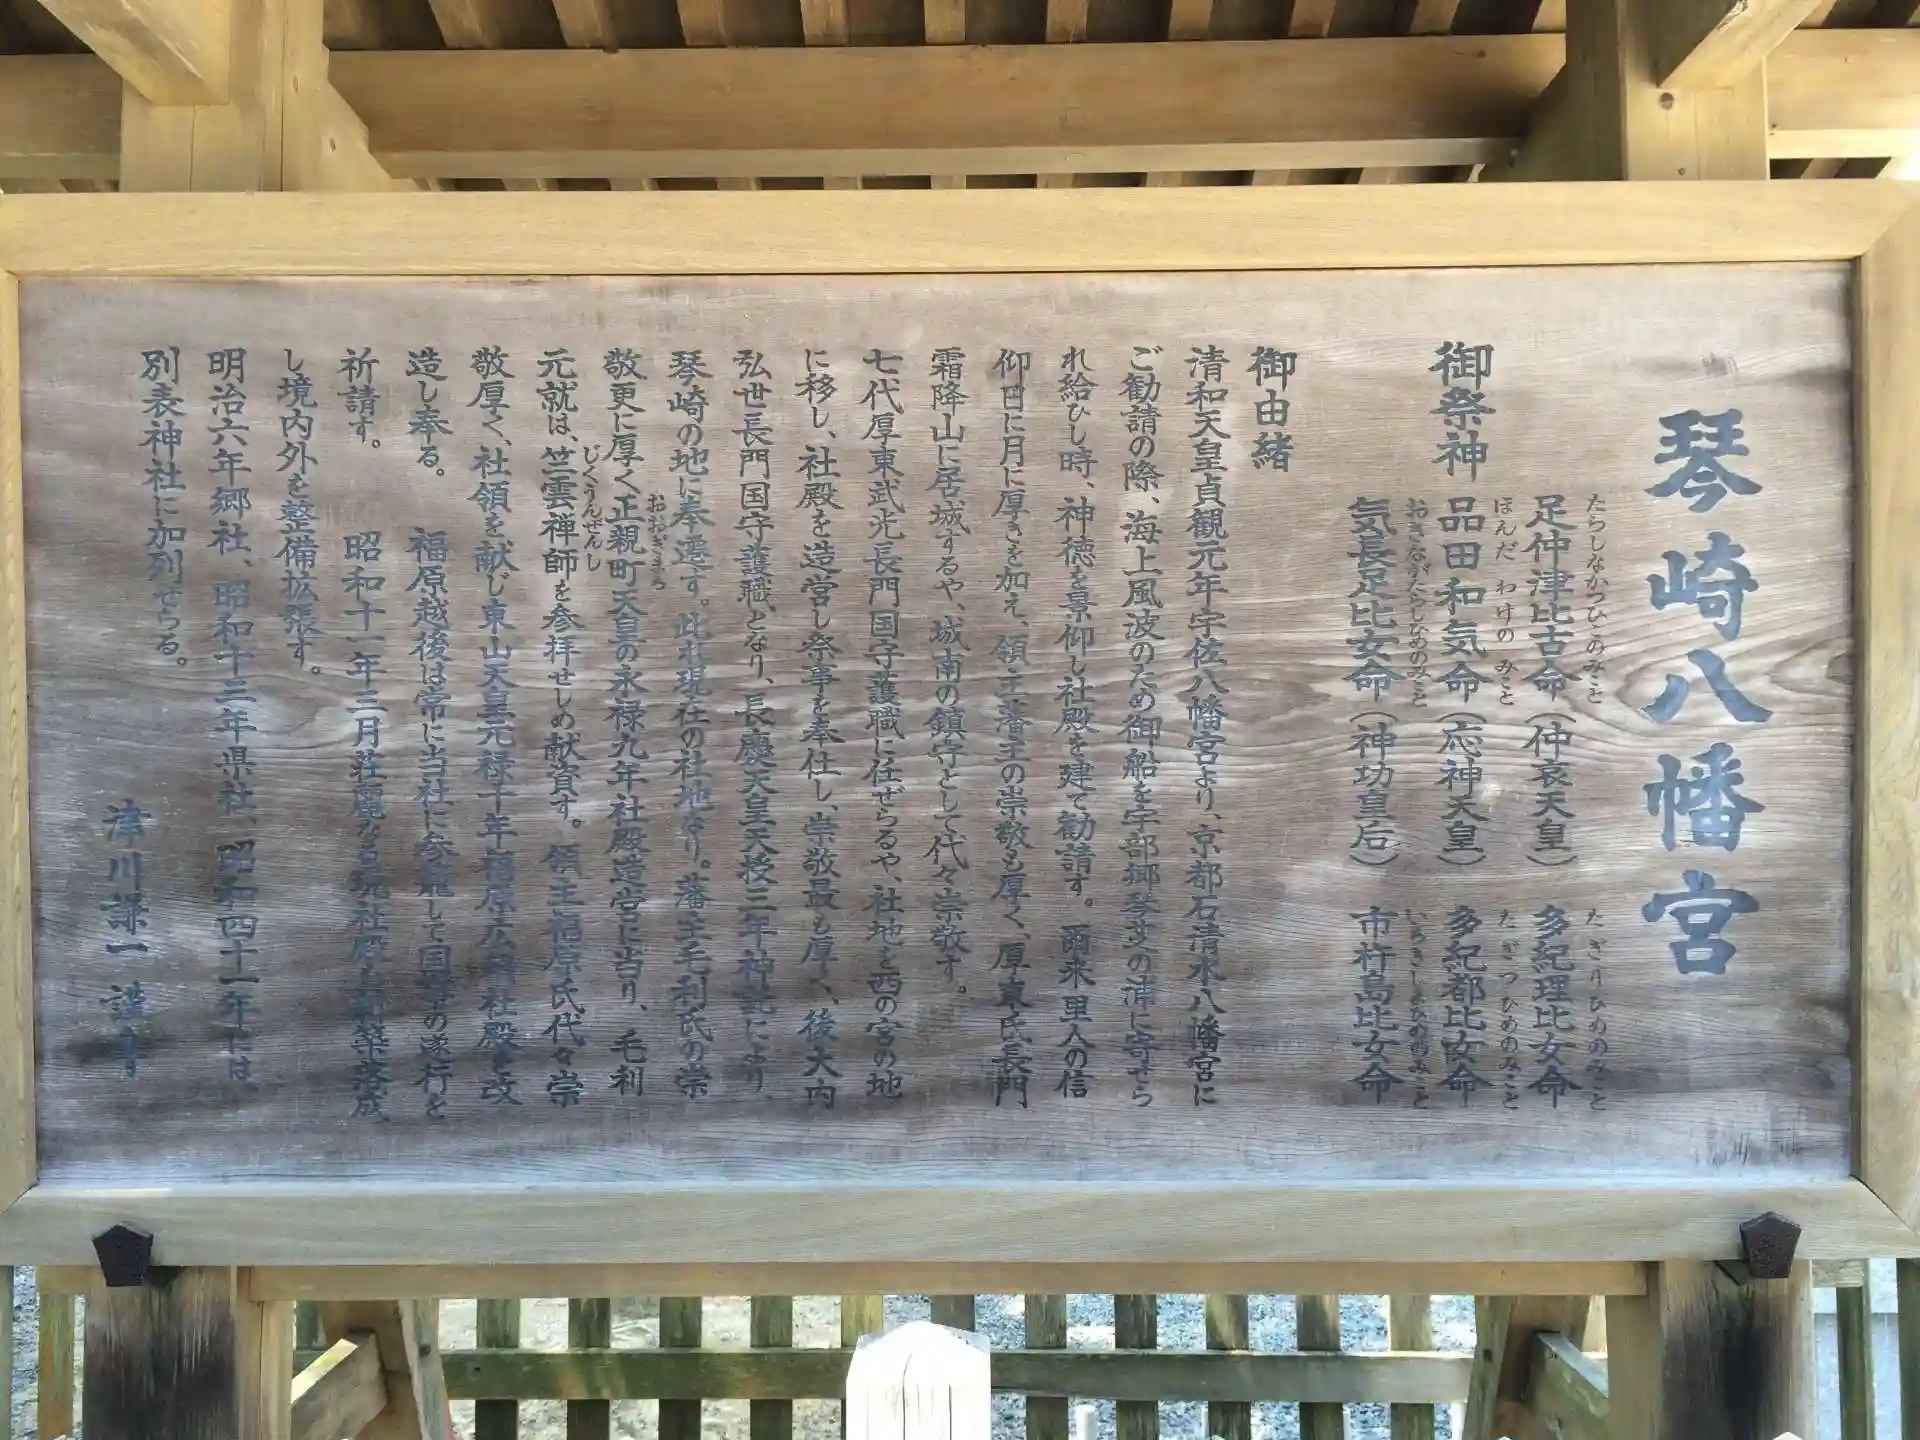 琴崎八幡宮
御祭神
足仲津比古命（仲哀天皇）　多紀理比女命
たらしなかつひこのみこと　たぎりひめのみこと
品田和気命（応神天皇）　多紀都比女命
ほんだ わけの みこと　たぎつひめのみこと
気長足比女命（神功皇后）　市杵島比女命
おきながたらしひめのみこと　いちきしまひめのみこと
御由緒
清和天皇貞観元年宇佐八幡宮より、京都石清水八幡宮に
ご勧請の際、海上風波のため御船を宇部郷琴芝の浦に寄せら
れ給ひし時、神徳を景仰し社殿を建て勧請す。爾来里人の信
仰日に月に厚きを加え、領主藩主の崇敬も厚く、厚東氏長門
霜降山に居城するや、城南の鎮守として代々崇敬す。
七代厚東武光長門国守護職に任ぜらるや、社地を西の宮の地
に移し、社殿を造営し祭事を奉仕し、崇敬最も厚く、後大内
弘世長門国守護職となり、長慶天皇天授三年神託により、
琴崎の地に奉遷す。此れ現在の社地なり。藩主毛利氏の崇
敬更に厚く正親町天皇の永禄九年社殿造営に当り、毛利
おおぎまち
元就は、竺雲禅師を参拝せしめ献資す。領主福原氏代々崇
じくうんぜんし
敬厚く、社領を献じ東山天皇元禄十年福原広 社殿を改
造し奉る。　福原越後は常に当社に参籠して国事の遂行を
祈請す。　昭和十一年三月荘麗なる現社殿を新築落成、
し境内外を整備拡張す。
明治六年郷社、昭和十三年県社、昭和四十一年には、
別表神社に加列せらる。
津川謙一 謹書